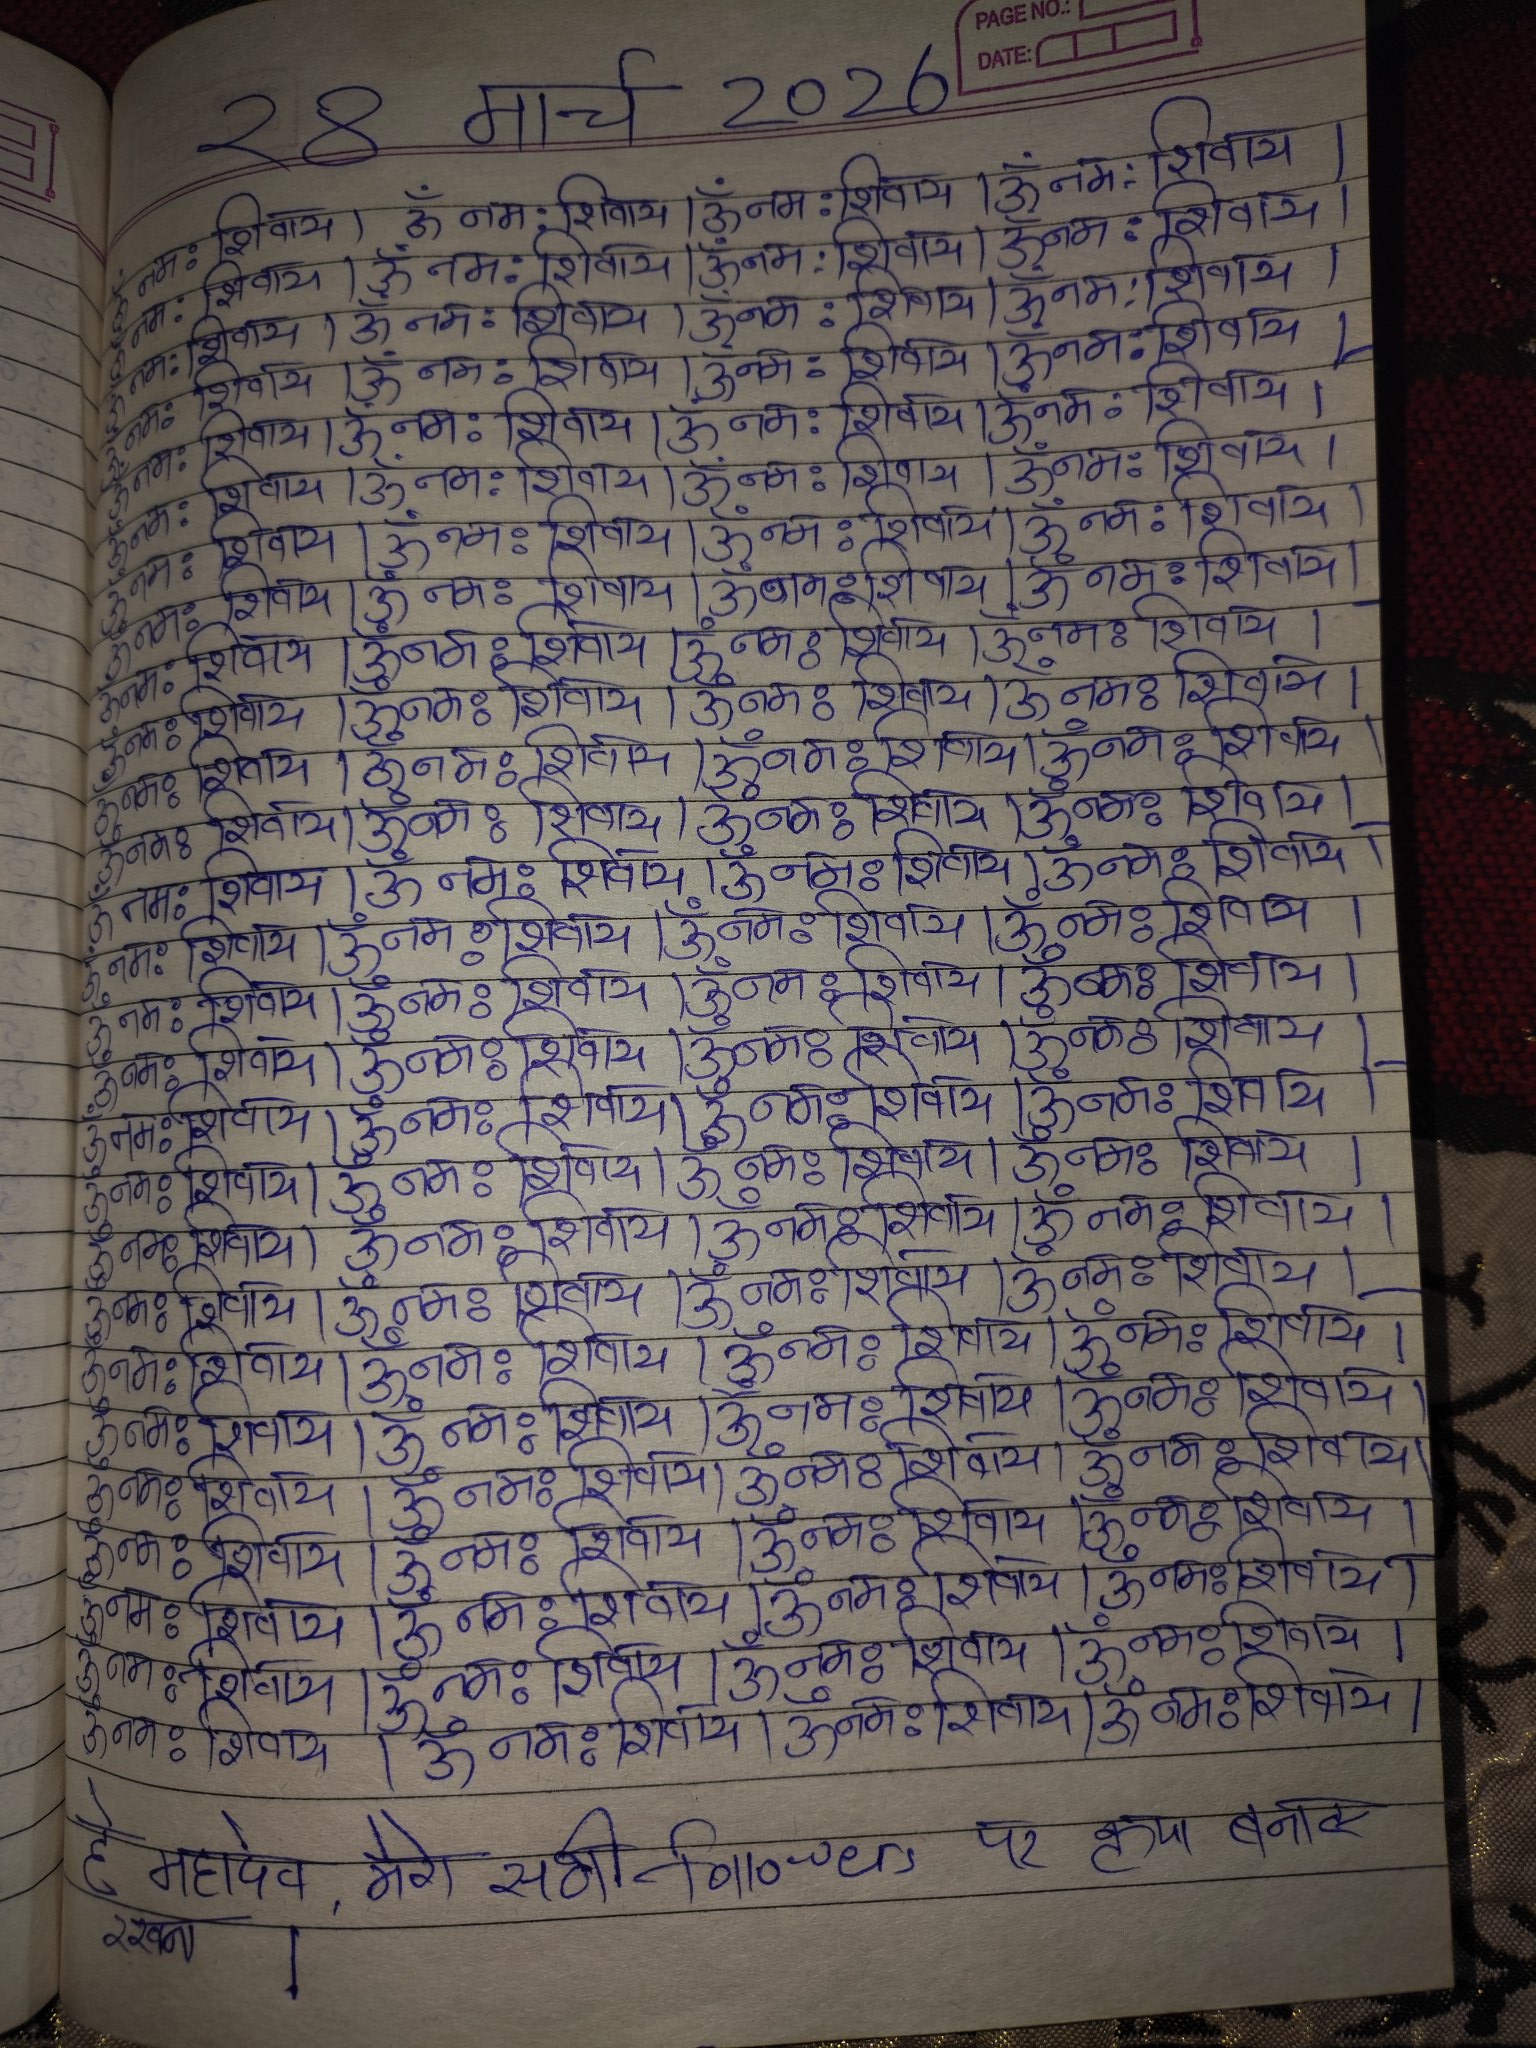 PAGE NO.:
DATE:
28 मार्च 2026
ॐ नमः शिवाय । ॐ नमः शिवाय । ॐ नमः शिवाय । ॐ नमः शिवाय ।
ॐ नमः शिवाय । ॐ नमः शिवाय । ॐ नमः शिवाय । ॐ नमः शिवाय ।
ॐ नमः शिवाय । ॐ नमः शिवाय । ॐ नमः शिवाय । ॐ नमः शिवाय ।
ॐ नमः शिवाय । ॐ नमः शिवाय । ॐ नमः शिवाय । ॐ नमः शिवाय ।
ॐ नमः शिवाय । ॐ नमः शिवाय । ॐ नमः शिवाय । ॐ नमः शिवाय ।
ॐ नमः शिवाय । ॐ नमः शिवाय । ॐ नमः शिवाय । ॐ नमः शिवाय ।
ॐ नमः शिवाय । ॐ नमः शिवाय । ॐ नमः शिवाय । ॐ नमः शिवाय ।
ॐ नमः शिवाय । ॐ नमः शिवाय । ॐ नमः शिवाय । ॐ नमः शिवाय ।
ॐ नमः शिवाय । ॐ नमः शिवाय । ॐ नमः शिवाय । ॐ नमः शिवाय ।
ॐ नमः शिवाय । ॐ नमः शिवाय । ॐ नमः शिवाय । ॐ नमः शिवाय ।
ॐ नमः शिवाय । ॐ नमः शिवाय । ॐ नमः शिवाय । ॐ नमः शिवाय ।
ॐ नमः शिवाय । ॐ नमः शिवाय । ॐ नमः शिवाय । ॐ नमः शिवाय ।
ॐ नमः शिवाय । ॐ नमः शिवाय । ॐ नमः शिवाय । ॐ नमः शिवाय ।
ॐ नमः शिवाय । ॐ नमः शिवाय । ॐ नमः शिवाय । ॐ नमः शिवाय ।
ॐ नमः शिवाय । ॐ नमः शिवाय । ॐ नमः शिवाय । ॐ नमः शिवाय ।
ॐ नमः शिवाय । ॐ नमः शिवाय । ॐ नमः शिवाय । ॐ नमः शिवाय ।
ॐ नमः शिवाय । ॐ नमः शिवाय । ॐ नमः शिवाय । ॐ नमः शिवाय ।
ॐ नमः शिवाय । ॐ नमः शिवाय । ॐ नमः शिवाय । ॐ नमः शिवाय ।
ॐ नमः शिवाय । ॐ नमः शिवाय । ॐ नमः शिवाय । ॐ नमः शिवाय ।
ॐ नमः शिवाय । ॐ नमः शिवाय । ॐ नमः शिवाय । ॐ नमः शिवाय ।
ॐ नमः शिवाय । ॐ नमः शिवाय । ॐ नमः शिवाय । ॐ नमः शिवाय ।
ॐ नमः शिवाय । ॐ नमः शिवाय । ॐ नमः शिवाय । ॐ नमः शिवाय ।
ॐ नमः शिवाय । ॐ नमः शिवाय । ॐ नमः शिवाय । ॐ नमः शिवाय ।
ॐ नमः शिवाय । ॐ नमः शिवाय । ॐ नमः शिवाय । ॐ नमः शिवाय ।
ॐ नमः शिवाय । ॐ नमः शिवाय । ॐ नमः शिवाय । ॐ नमः शिवाय ।
ॐ नमः शिवाय । ॐ नमः शिवाय । ॐ नमः शिवाय । ॐ नमः शिवाय ।
ॐ नमः शिवाय । ॐ नमः शिवाय । ॐ नमः शिवाय । ॐ नमः शिवाय ।
हे महादेव, मेरे सभी पर कृपा बनाए
रखना ।